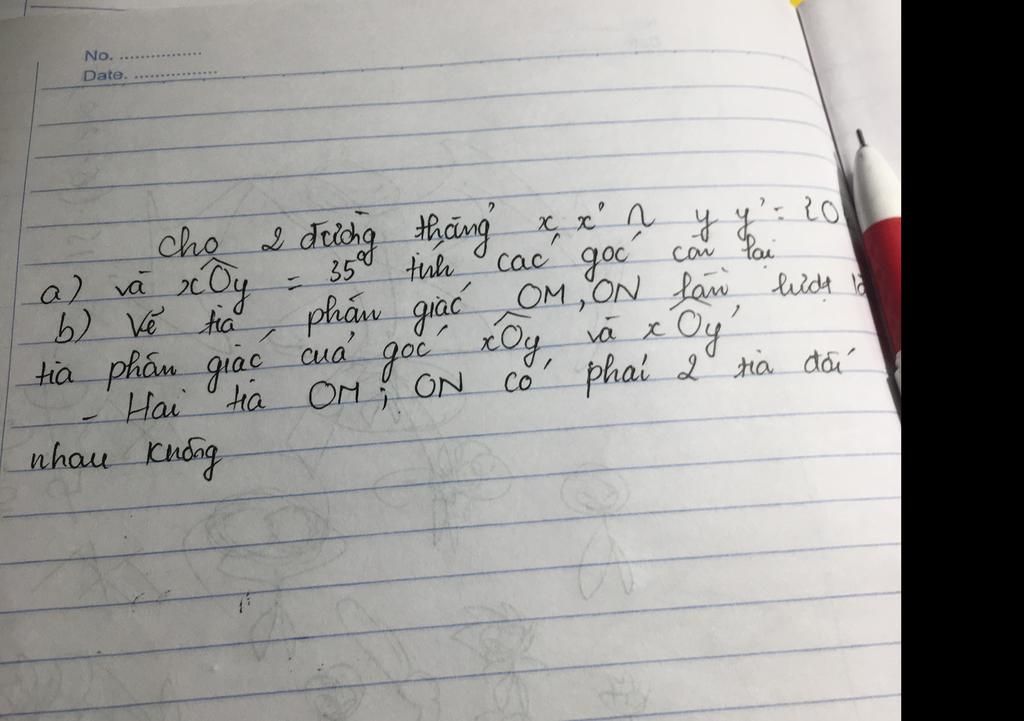 No. ................
Date. ................
Cho 2 đường thẳng x x' ∩ y y' = {O
a) và xÔy = 35° tính các góc còn lại
b) Vẽ tia phân giác OM, ON lần lượt là
tia phân giác của góc xÔy và xÔy'
- Hai tia OM; ON có phải 2 tia đối
nhau không